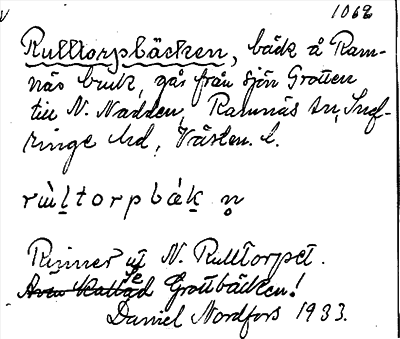 1068
Rulltorpsbäcken, bäck å Ram-
näs bruk, går från sjön Grotten
till N. Nadden, Ramnäs sn, Snef-
ringe hd, Västm. l.
Rinner vid N. Rulltorpet.
Även kallad Se Grottbäcken!
Daniel Nordfors 1933.